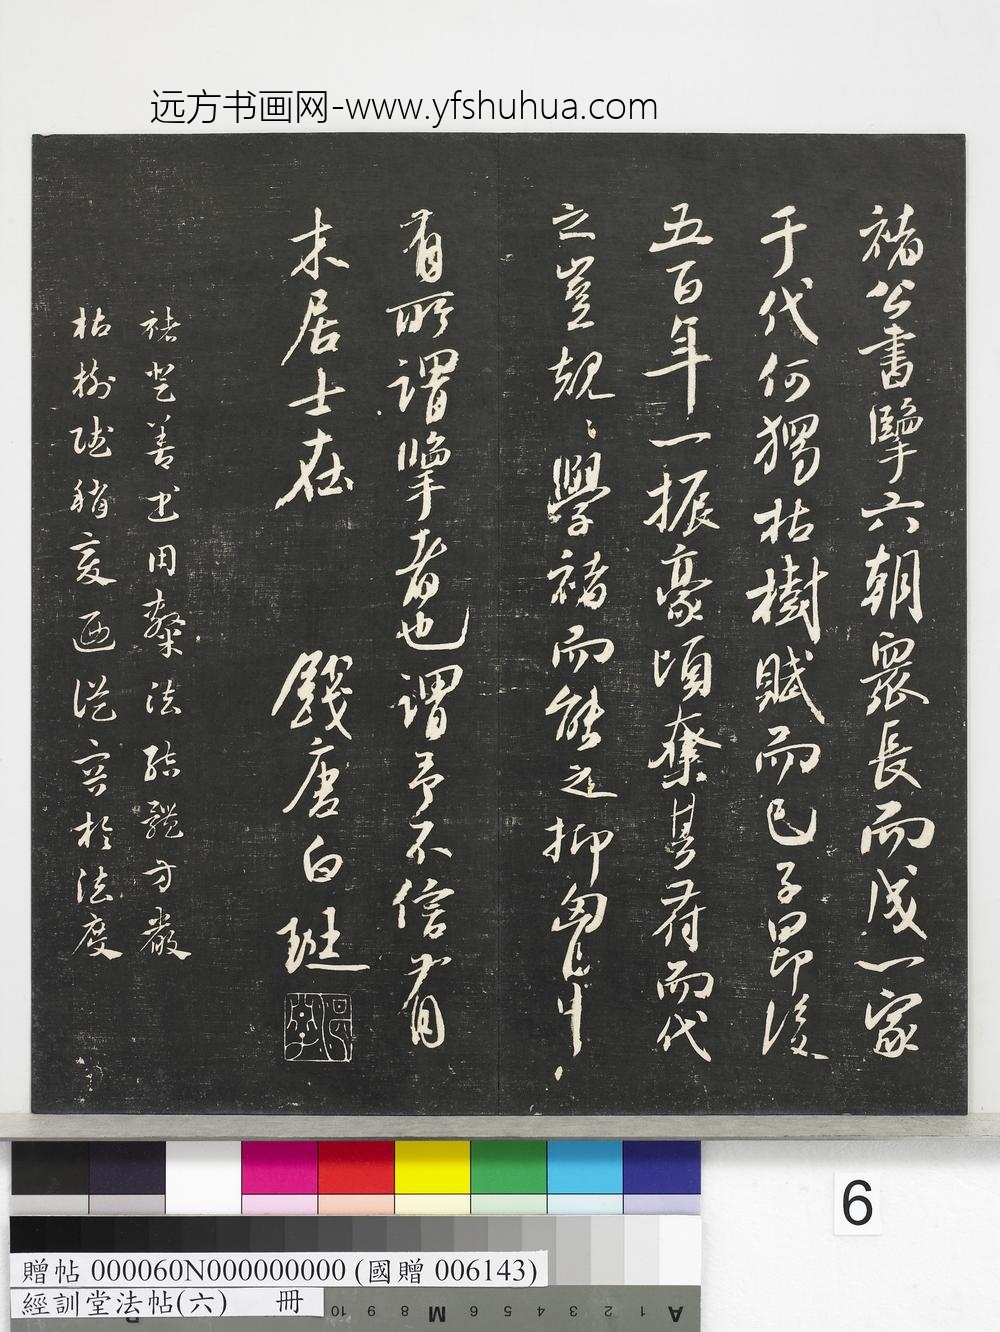 远方书画网-www.yfshuhua.com
褚公書擥六朝衆長而成一家
于代何獨枯樹賦而已子昂後
五百年一振豪頃奪其席而代
之豈規〻學褚而能之抑
有所謂擥者也謂予不信有
末居士在 錢唐白珽
褚登善書用隸法結體方嚴
枯樹賦稍變而從容於法度
6
贈帖 000060N000000000 (國贈 006143)
經訓堂法帖(六) 冊
10 9 8 M 6 5 4 3 2 1 A